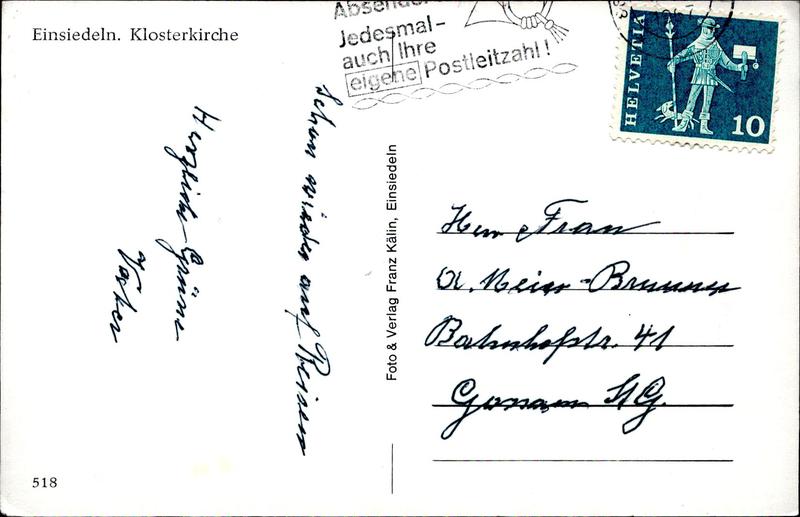 Einsiedeln. Klosterkirche
Absender
Jedesmal-
auch Ihre
eigene Postleitzahl!
HELVETIA
10
Schon wieder auf Reisen
Herzliche Grüsse
Vater
Foto & Verlag Franz Kälin, Einsiedeln
Herr Frau
A. Meier-Brunner
Bahnhofstr. 41
Gossau SG.
518